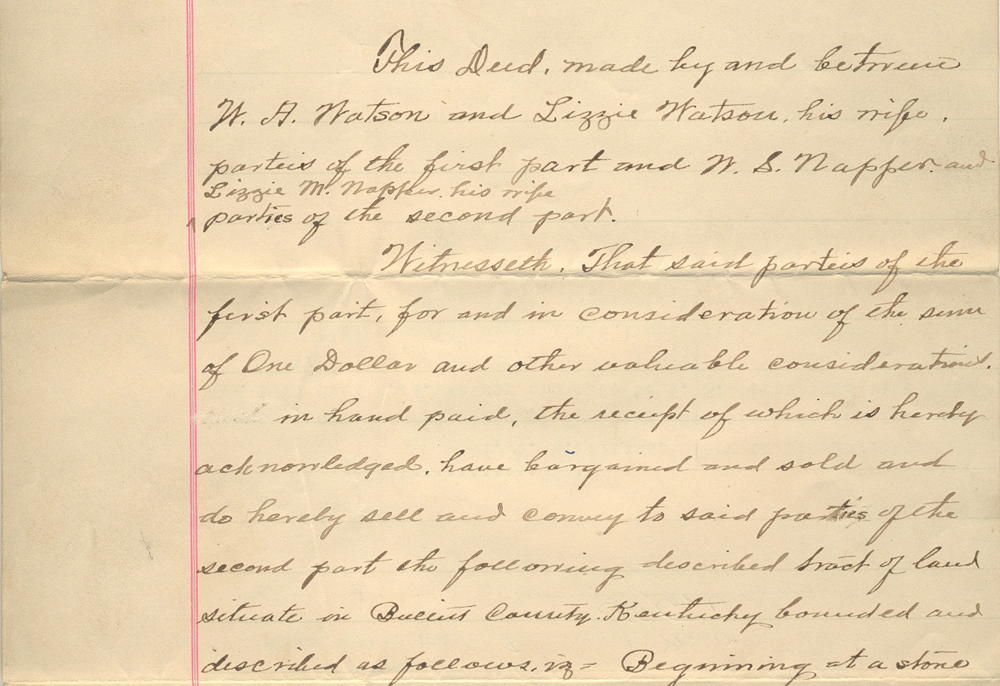 This Deed, made by and between
W. A. Watson and Lizzie Watson, his wife,
parteis of the first part and W. S. Napper and
Lizzie M. Napper, his wife
parties of the second part.
Witnesseth, That said parteis of the
first part, for and in consideration of the sum
of One Dollar and other valuable considerations.
in hand paid, the receipt of which is hereby
acknowledged, have bargained and sold and
do hereby sell and convey to said parties of the
second part the following described tract of land
situate in Bullitt County, Kentucky bounded and
described as follows, viz = Beginning at a stone